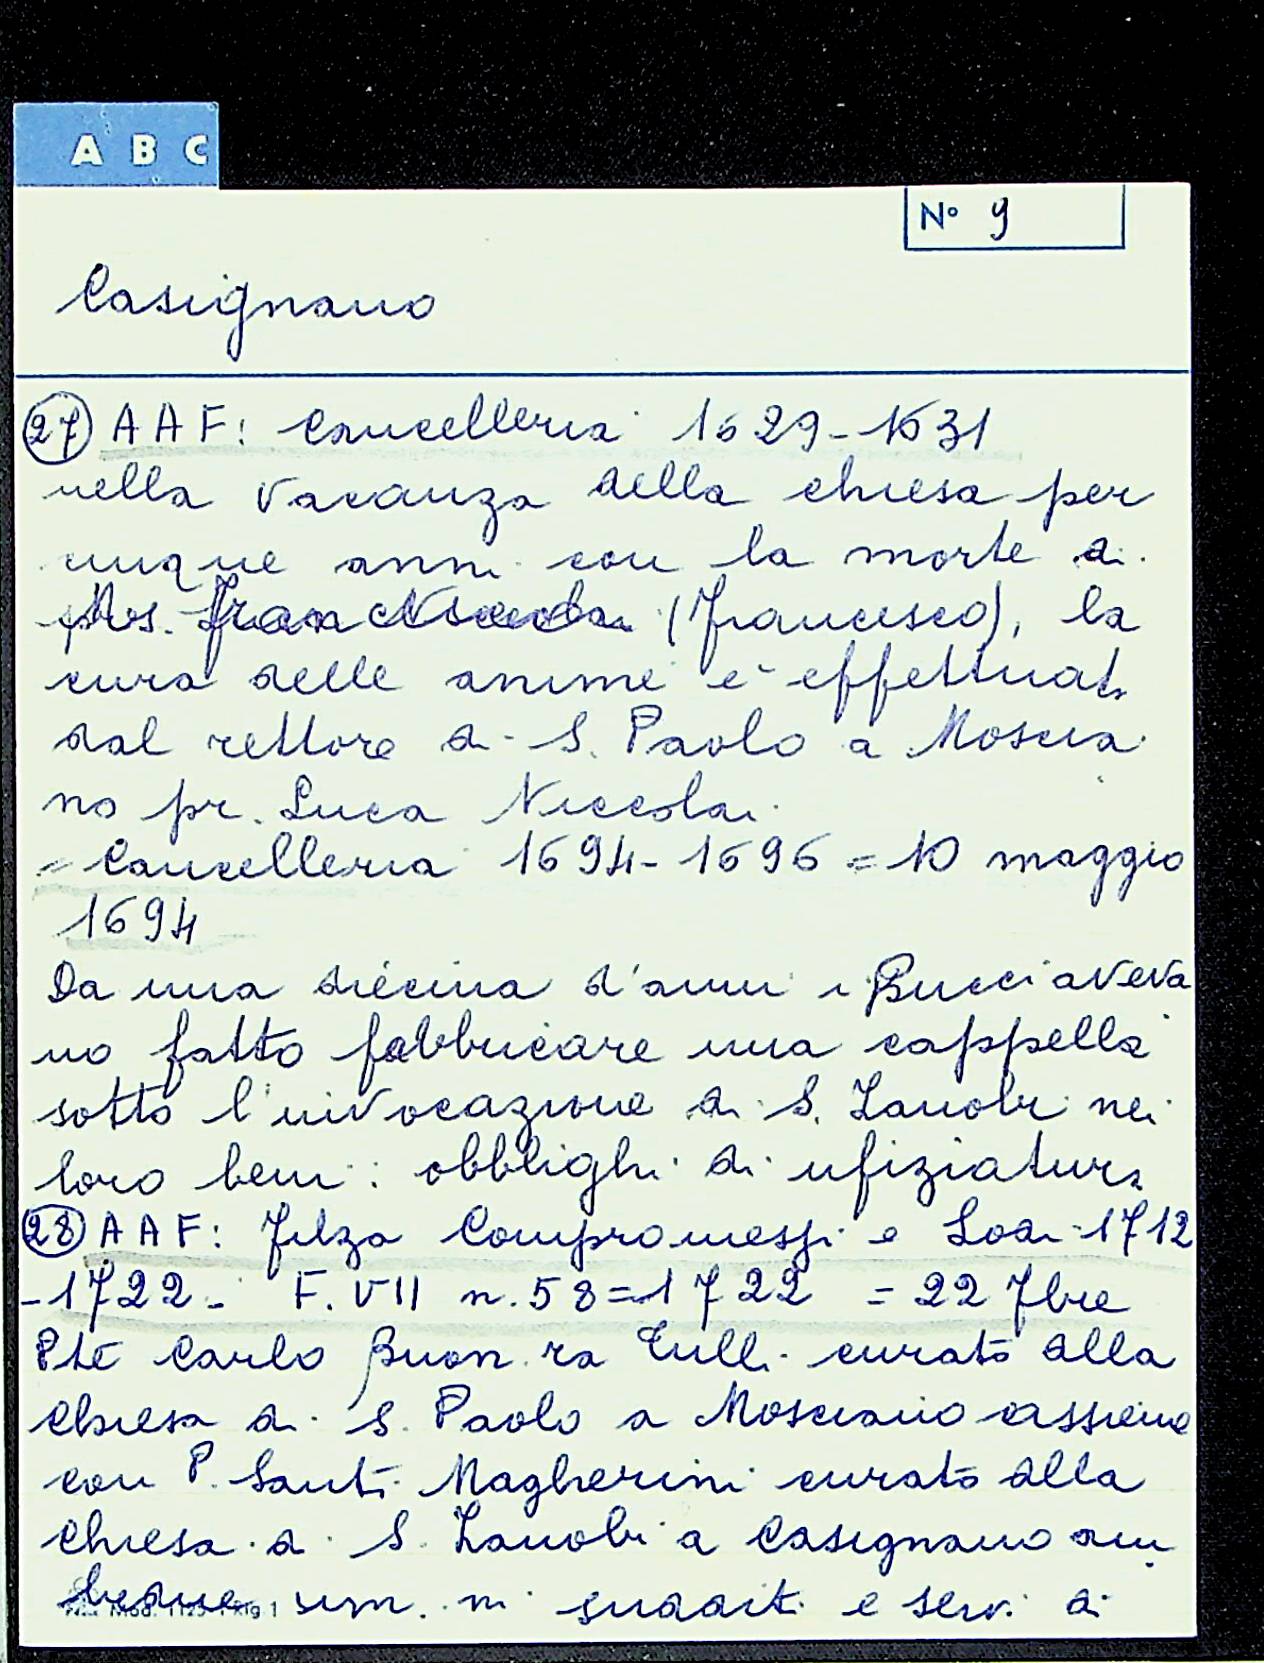 A B C
N° 9
Casignano
27 AAF: Cancelleria 1629-1631
nella vacanza della chiesa per
cinque anni con la morte di
(Francesco), la
cura delle anime è effettuata
dal rettore di S. Paolo a Moscia
no pr. Luca Niccolai.
= Cancelleria 1694-1696 = 10 maggio
1694
Da una diecina d'anni i Bucci aveva
no fatto fabbricare una cappella
sotto l'invocazione di S. Zanobi nei
loro beni: obblighi di ufiziatura
28 AAF: Filza Compromessi e Lodi 1712
-1722. F. VII n. 58 = 1722 = 22 7bre
Pte Carlo Buon Tulli curato alla
chiesa di S. Paolo a Mosciano assieme
con P. Santi Magherini curato alla
chiesa di S. Zanobi a Casignano am
bedue um.mi sudditi e servi di